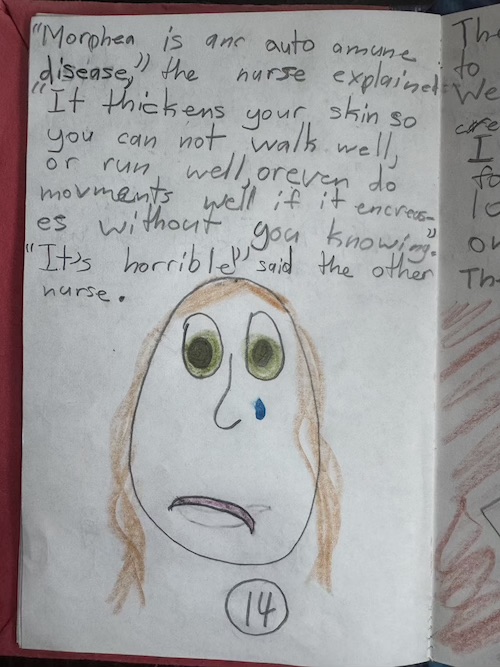 "Morphea is anr auto amune
disease," the nurse explained.
"It thickens your skin so
you can not walk well,
or run well, oreven do
movments well if it encreas-
es without you knowing."
"It's horrible" said the other
nurse.
14
The
to
We
care
I
fo
lo
on
Th